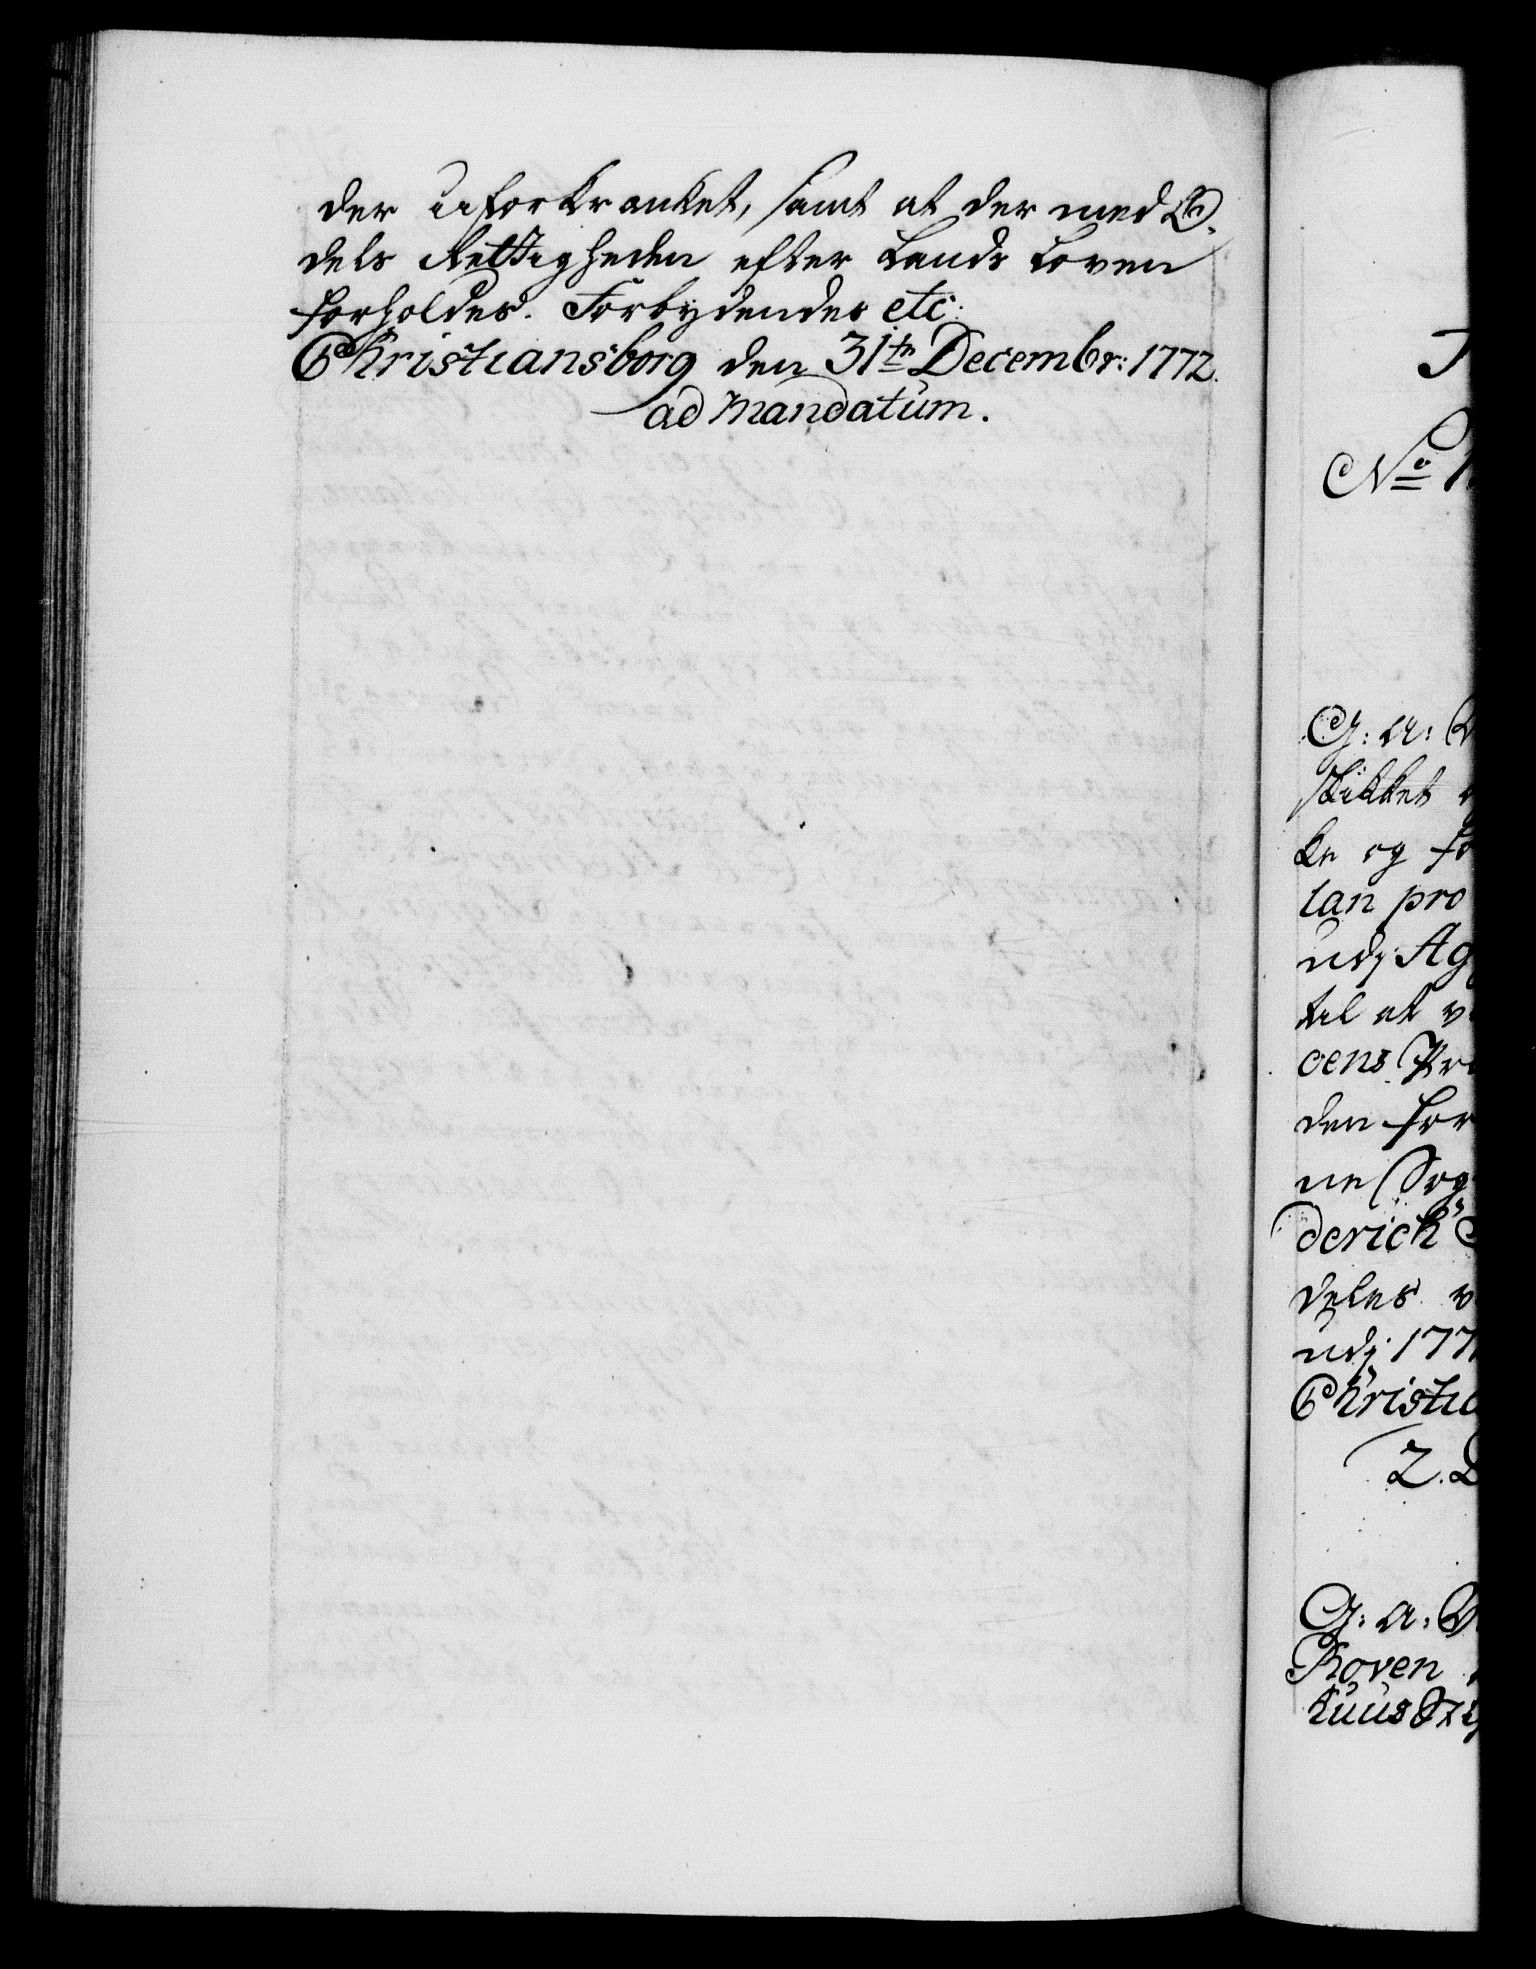 der uforkranket, samt at der med O¸
dels Rettigheden efter Lands Loven
forholdes. Forbydendes etc:
Christiansborg den 31te Decembr: 1772.
ad Mandatum.
No
G: A: V
skikket
ke og fo
lan pro
udj Ag
til at v
cens Pr
den for
ne Sog
derich
deles v
udj 177
Christia
2.
G: A: V
Hoven
huus Sti